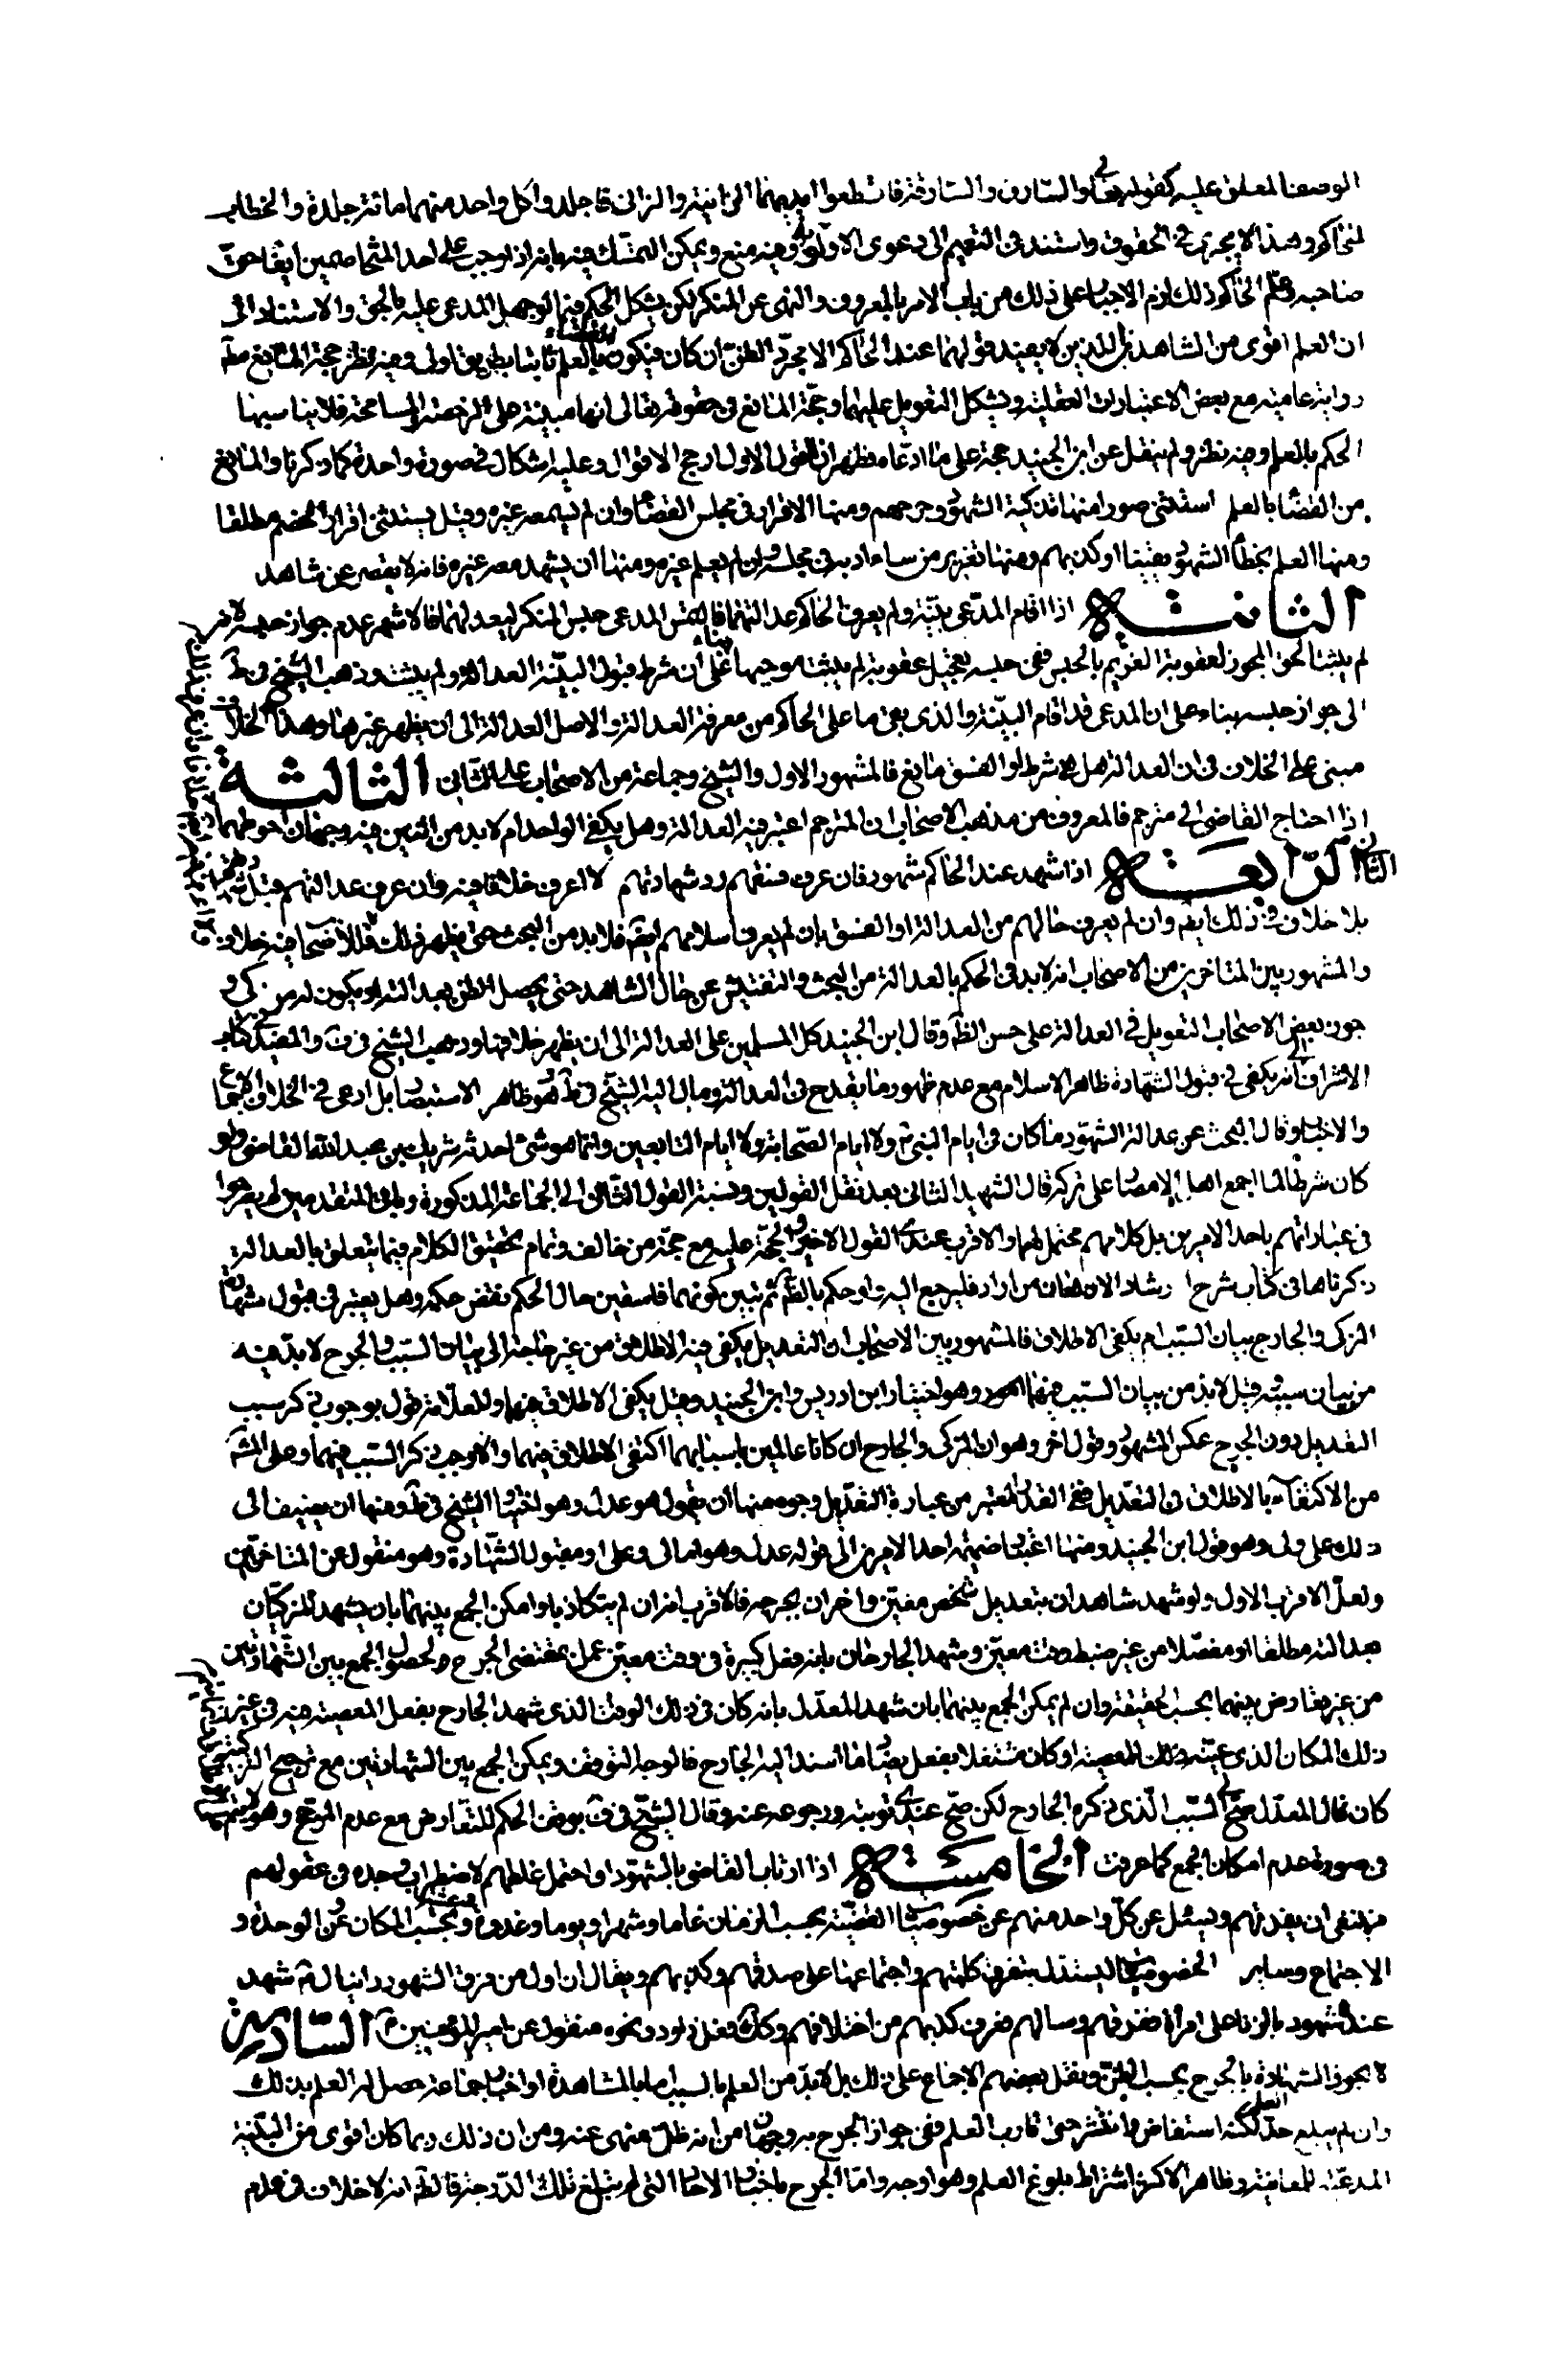 الوصف المعلق عليه كقوله تعالى والسارق والسارقة فاقطعوا ايديهما الزانية والزانى فاجلدوا كل واحد منهما مائة جلدة والخطاب
للحاكم وهذا لا يجرى فى الحقوق واستند فى التعميم الى دعوى الاولوية وفيه منع ويمكن التمسك فيه بانه اذا وجب على احد المتخاصمين ايفاء حق
صاحبه وعلم الحاكم ذلك لزم الاجبار على ذلك من باب الامر بالمعروف والنهى عن المنكر لكن يشكل الحكم فيما لو جهل المدعى عليه بالحق والاستناد الى
ان العلم اقوى من الشاهدين اللذين لا يفيد قولهما عند الحاكم الا مجرد الظن ان كان فيكون القضاء بالعلم ثابتا بطريق اولى وفيه نظر حجة المانع مطلقا
رواية عامية مع بعض الاعتبارات العقلية ويشكل التعويل عليهما وحجة المانع فى حقوقه تعالى انها مبينة على الرخصة والمسامحة فلا يناسبها
الحكم بالعلم وفيه نظر ولم ينقل عن ابن الجنيد حجة على ما ادعاه فظهر ان القول الاول ارجح الاقوال وعليه اشكال فى صورة واحدة كما ذكرنا والمانع
من القضاء بالعلم استثنى صورا منها تزكية الشهود وجرحهم ومنها الاقرار فى مجلس القضاء وان لم يسمعه غيره وقيل يستثنى اقرار الخصم مطلقا
ومنها العلم بخطأ الشهود يقينا او كذبهم ومنها تعزير من ساء ادبه فى مجلسه وان لم يعلم غيره ومنها ان يشهد معه غيره فانه لا يقصر عن شاهد
الثانية اذا اقام المدعى بينة ولم يعرف الحاكم عدالتهما فالتمس المدعى حبس المنكر ليعدلهما فالاشهر عدم جواز حبسه لانه
لم يثبت الحق المجوز لعقوبة الغريم بالحبس ففى حبسه تعجيل عقوبة لم يثبت موجبها بناء على ان شرط قبول البينة العدالة ولم يثبت وذهب الشيخ فى ط
الى جواز حبسه بناء على ان المدعى قد اقام البينة والذى بقى ما على الحاكم من معرفة العدالة والاصل العدالة الى ان يظهر غيرها وهذا الخلاف
مبنى على الخلاف فى ان العدالة هل هى شرط او الفسق مانع فالمشهور الاول والشيخ وجماعة من الاصحاب على الثانى الثالثة
اذا احتاج القاضى الى مترجم فالمعروف من مذهب الاصحاب ان المترجم اعتبر فيه العدالة وهل يكفى الواحد ام لا بد من اثنين فيه وجهان احوطهما
الثانى الرابعة اذا شهد عند الحاكم شهود فان عرف فسقهم رد شهادتهم لا اعرف خلافا فيه وان عرف عدالتهم قبل شهادتهم
بلا خلاف فى ذلك ايضا وان لم يعرف حالهم من العدالة او الفسق بان لم يعرف اسلامهم ايضا فلا بد من البحث حتى يظهر ذلك فللاصحاب فيه خلاف
والمشهور بين المتاخرين من الاصحاب انه لا بد فى الحكم بالعدالة من البحث والتفتيش عن حال الشاهد حتى يحصل الظن بعدالته او يكون له مزكى و
جوز بعض الاصحاب التعويل فى العدالة على حسن الظاهر وقال ابن الجنيد كل المسلمين على العدالة الى ان يظهر خلافها وذهب الشيخ فى ف والمفيد فى كتاب
الاشراف الى انه يكفى فى قبول الشهادة ظاهر الاسلام مع عدم ظهور ما يقدح فى العدالة ومال اليه الشيخ فى ط وهو ظاهر الاستبصار بل ادعى فى الخلاف الاجماع
والاخبار وقال البحث عن عدالة الشهود ما كان فى ايام النبى ص ولا ايام الصحابة ولا ايام التابعين وانما هو شئ احدثه شريك بن عبد الله القاضى ولو
كان شرطا لما اجمع اهل الامصار على تركه قال الشهيد الثانى بعد نقل القولين ونسبة القول الثانى الى الجماعة المذكورة وباقى المتقدمين لم يصرحوا
فى عباراتهم باحد الامرين بل كلامهم محتمل لهما والاقرب عندى القول الاخير والحجة عليه مع حجة من خالف وتمام تحقيق الكلام فيما يتعلق بالعدالة
ذكرناها فى كتاب شرح ارشاد الاذهان من اراد فليرجع اليه ولو حكم بالظاهر ثم تبين كونهما فاسقين حال الحكم نقض حكمه وهل يعتبر فى قبول شهادة
المزكى والجارح بيان السبب ام يكفى الاطلاق فالمشهور بين الاصحاب ان التعديل يكفى فيه الاطلاق من غير حاجة الى بيان السبب والجرح لا بد فيه
من بيان سببه وقيل لا بد من بيان السبب فيهما وهو اختيار ابن ادريس وابن الجنيد وقيل يكفى الاطلاق فيهما وللعلامة قول بوجوب ذكر سبب
التعديل دون الجرح عكس المشهور وقول اخر وهو ان المزكى والجارح ان كانا عالمين باسبابهما اكتفى الاطلاق فيهما والا وجب ذكر السبب فيهما وعلى المشهور
من الاكتفاء بالاطلاق فى التعديل ففى القدر المعتبر من عبارة التعديل وجوه منها ان يقول هو عدل وهو اختيار الشيخ فى ط ومنها ان يضيف الى
ذلك على ولى وهو قول ابن الجنيد ومنها اعتبار ضميمة احد الامرين الى قوله عدل وهو اما لى وعلى او مقبول الشهادة وهو منقول عن المتاخرين
ولعل الاقرب الاول ولو شهد شاهدان بتعديل شخص معين واخران بجرحه فالاقرب انه ان لم يتكاذبا وامكن الجمع بينهما بان يشهد المزكيان
بعدالته مطلقا او مفصلا من غير ضبط وقت معين وشهد الجارحان بانه فعل كبيرة فى وقت معين عمل بمقتضى الجرح لحصول الجمع بين الشهادتين
من غير تعارض بينهما بحسب الحقيقة وان لم يمكن الجمع بينهما بان شهد المعدل بانه كان فى ذلك الوقت الذى شهد الجارح بفعل المعصية فيه فى غير
ذلك المكان الذى عينه لتلك المعصية او كان مشتغلا بفعل يضاد ما اسند اليه الجارح فالوجه التوقف ويمكن الجمع بين الشهادتين مع ترجيح التزكية كما اذا
كان قال المعدل صح السبب الذى ذكره الجارح لكن صح عندى توبته ورجوعه عنه وقال الشيخ فى ف بوقف الحكم للتعارض مع عدم المرجح وهو متجه
فى صورة عدم امكان الجمع كما عرفت الخامسة اذا ارتاب القاضى بالشهود او احتمل غلطهم لاضطراب يجده فى عقولهم
فينبغى ان يفرقهم ويسئل عن كل واحد منهم عن خصوصيات القضية بحسب الزمان عاما وشهرا ويوما وغدوة وعشية وبحسب المكان وعن الوحدة و
الاجتماع وساير الخصوصيات ليستدل بتفرق كلمتهم واجتماعها على صدقهم وكذبهم ويقال ان اول من فرق الشهود دانيال ع شهد
عنده شهود بالزنا على امرأة ففرقهم وسالهم فعرف كذبهم من اختلافهم وكذلك فعل داود ونحوه منقول عن امير المؤمنين ع السادسة
لا يجوز الشهادة بالجرح بحسب الظن ونقل بعضهم الاجماع على ذلك بل لا بد من العلم بالسبب اما بالمشاهدة او اخبار جماعة حصل له العلم بذلك
وان لم يبلغ حد العلم لكنه استفاض وانتشر حتى قارب العلم ففى جواز الجرح به وجهان من انه ظن منهى عنه ومن ان ذلك ربما كان اقوى من البينة
المدعية للمعاينة وظاهر الاكثر اشتراط بلوغ العلم وهو اوجه واما الجرح باخبار الاحاد التى لم يبلغ تلك الدرجة فالظاهر انه لا خلاف فى عدم